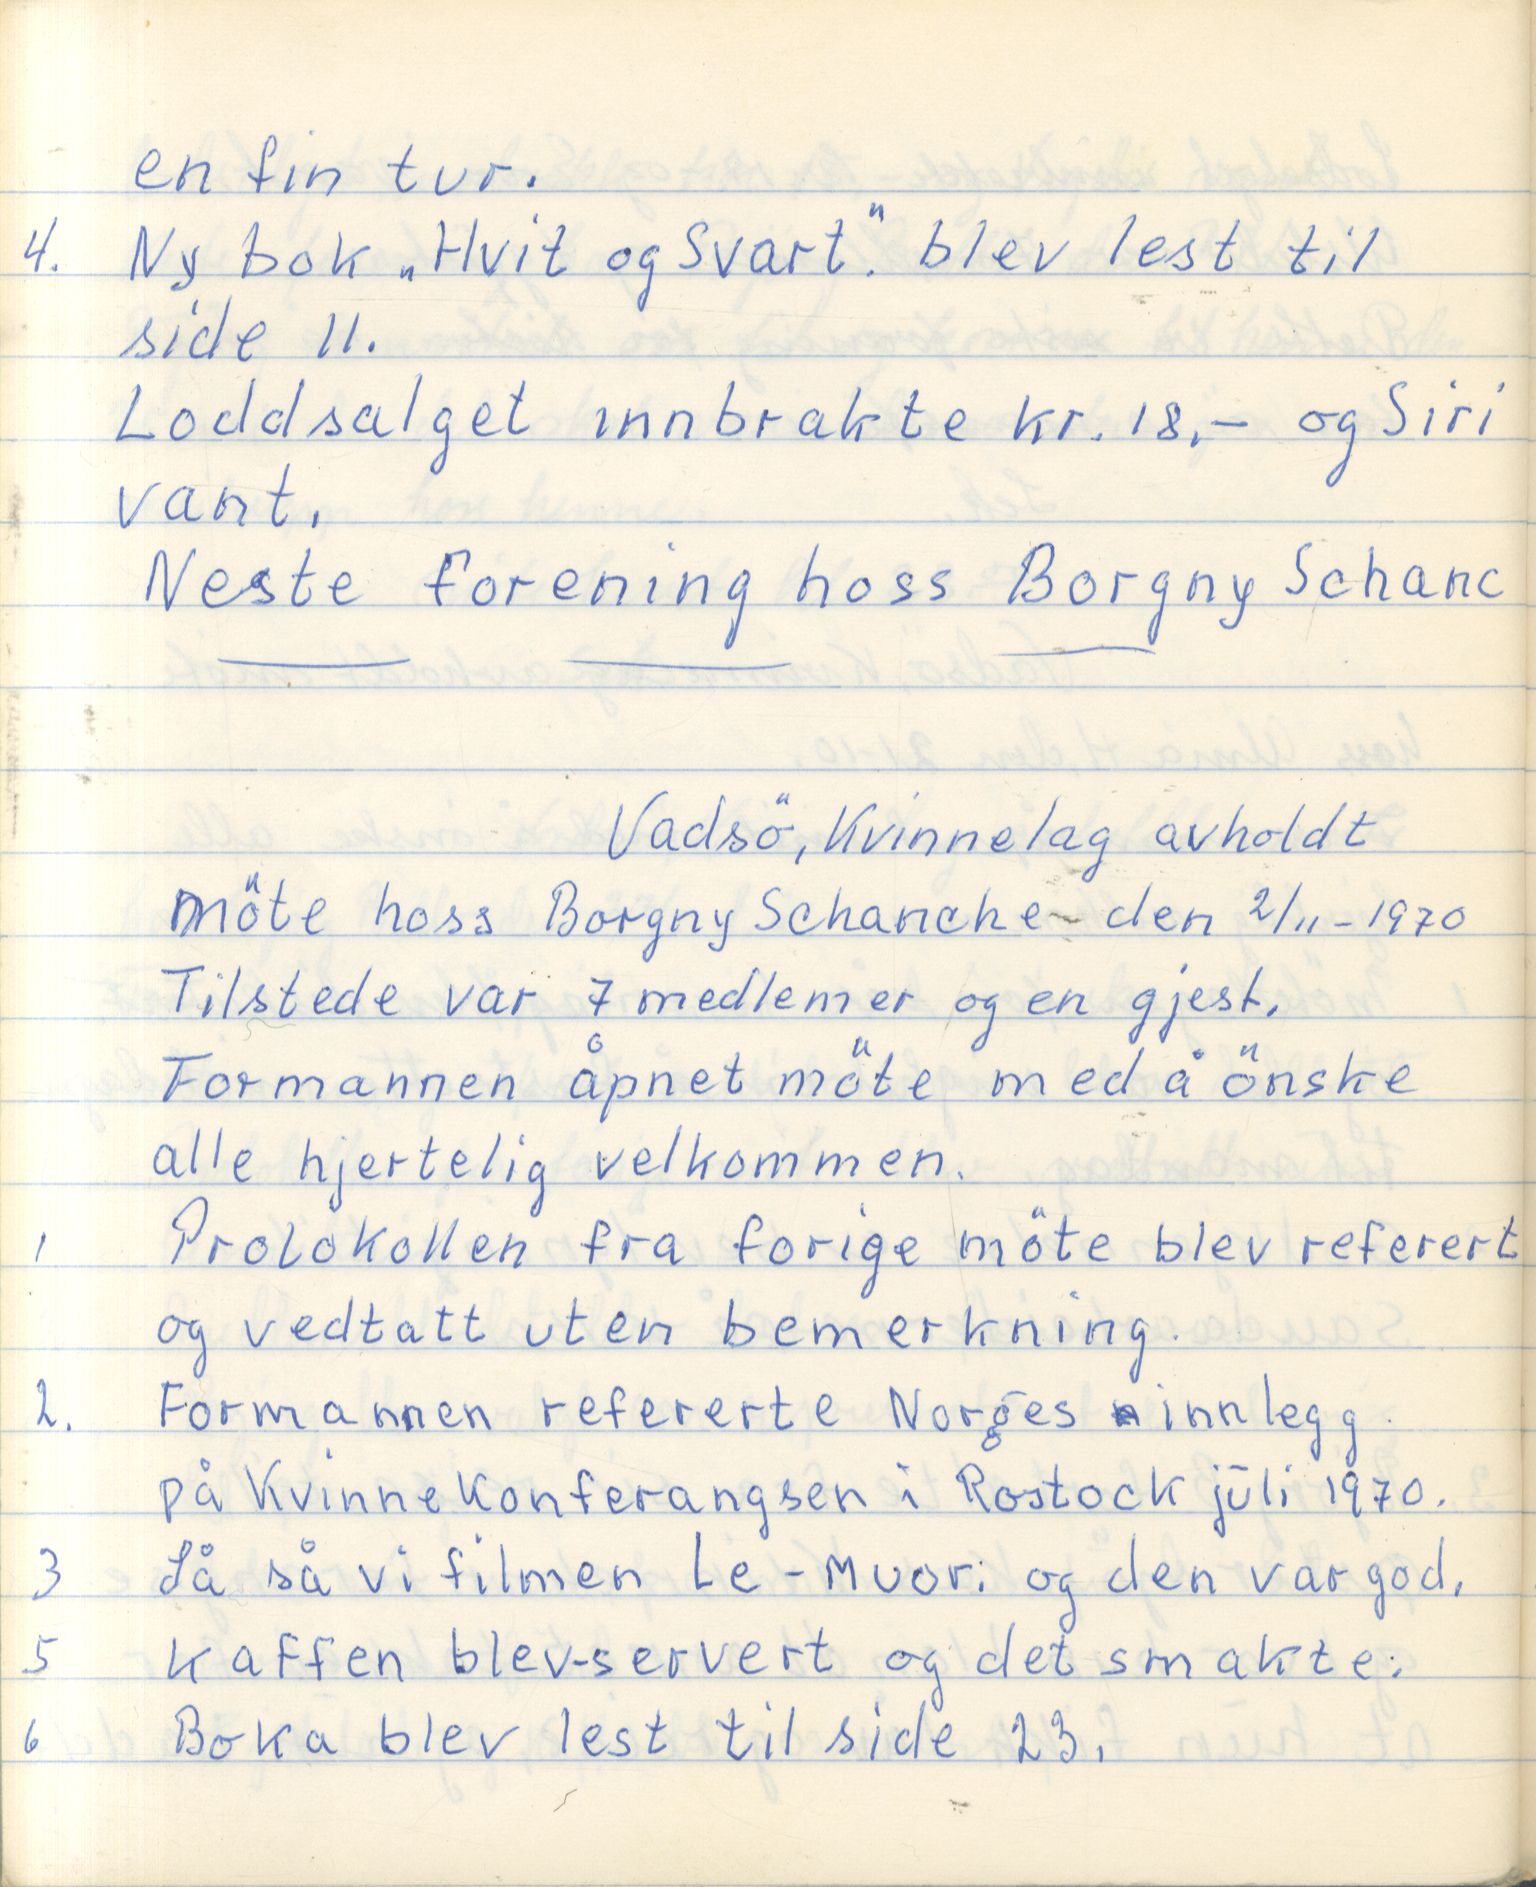 en fin tur.
4. Ny bok „Hvit og Svart". blev lest til
side 11.
Loddsalget innbrakte kr. 18,- og Siri
vant.
Neste forening hoss Borgny Schanc
Vadsö, Kvinnelag avholdt
möte hoss Borgny Schanche den 2/11-1970
Tilstede var 7 medlemer og en gjest.
Formannen åpnet möte med å önske
alle hjertelig velkommen.
1 Protokollen fra forige möte blev referert
og vedtatt uten bemerkning.
2. Formannen refererte Norges innlegg.
på Kvinnekonferangsen i Rostock jūli 1970.
3 Så så vi filmen Le-Muori og den var god.
5 Kaffen blev-servert og det smakte.
6 Boka blev lest til side 23.